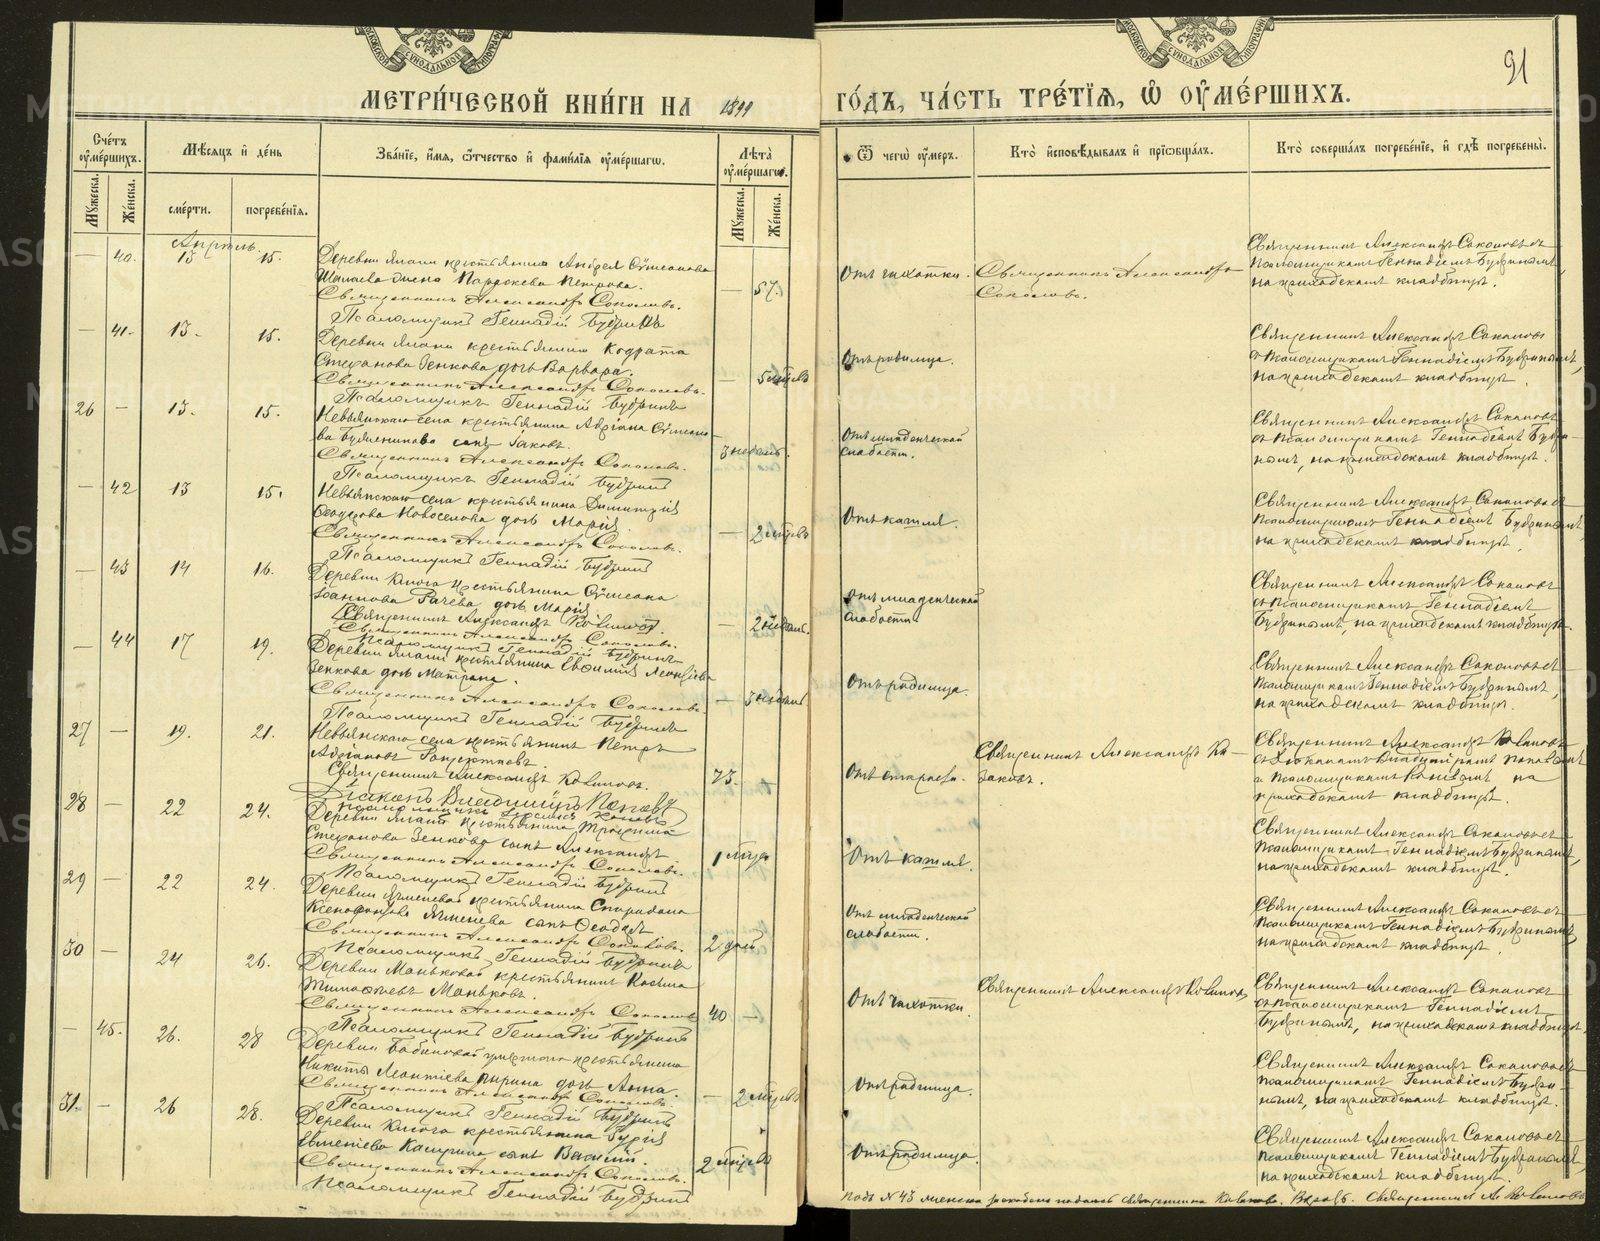 МЕТРИ́ЧЕСКОЙ КНИ́ГИ НА 1899
ГО́ДЪ, ЧА́СТЬ ТРЕ́ТІѦ, Ѡ҆ ОУ҆МЕ́РШИХЪ.
91
Сче́тъ оу҆ме́ршихъ.
Мѣ́сѧцъ и҆ де́нь
Зва́нїе, и҆́мѧ, ѻ҆́тчество и҆ фами́лїѧ оу҆ме́ршагѡ.
Лѣ́та оу҆ме́ршагѡ.
Ѿ чегѡ̀ оу҆́меръ.
Кто̀ и҆сповѣ́дывалъ и҆ прїѡбща́лъ.
Кто̀ соверша́лъ погребе́нїе, и҆ гдѣ̀ погребены̀.
Мꙋ́жеска.
Же́нска.
сме́рти.
погребе́нїѧ.
Мꙋ́жеска.
Же́нска.
Апрѣль.
— 40. 13 15.
Деревни Ямани крестьянина Андрея Сѵмеонова
жена Параскева Петрова.
Священникъ Александръ Соколовъ.
Псаломщикъ Геннадій Будринъ
— 57.
Отъ чахотки.
Священникъ Александръ
Соколовъ.
Священникъ Александръ Соколовъ съ
псаломщикомъ Геннадіемъ Будринымъ,
на приходскомъ кладбищѣ.
— 41. 13. 15.
Деревни Ямани крестьянина Кодрата
Стефанова Зенкова дочь Варвара.
Священникъ Александръ Соколовъ.
Псаломщикъ Геннадій Будринъ
— 5 мѣсяц.
Отъ родимца.
Священникъ Александръ Соколовъ
съ псаломщикомъ Геннадіемъ Будринымъ,
на приходскомъ кладбищѣ.
26 — 13. 15.
Невьянскаго села крестьянина Адріана Сѵмеоно-
ва сынъ Іаковъ.
Священникъ Александръ Соколовъ.
Псаломщикъ Геннадій Будринъ
3 недѣль.
Отъ младенческой
слабости.
Священникъ Александръ Соколовъ
съ псаломщикомъ Геннадіемъ Будри-
нымъ, на приходскомъ кладбищѣ.
— 42 13 15.
Невьянскаго села крестьянина Димитрія
Ѳеодорова Новоселова дочь Марія.
Священникъ Александръ Соколовъ.
Псаломщикъ Геннадій Будринъ
— 2 мѣсяц.
Отъ кашля.
Священникъ Александръ Соколовъ съ
псаломщикомъ Геннадіемъ Будринымъ,
на приходскомъ кладбищѣ.
— 43 14 16.
Деревни Ключа крестьянина Сѵмеона
Іоаннова Рачева дочь Марія.
Священникъ Александръ Ковшовъ.
Священникъ Александръ Соколовъ.
Псаломщикъ Геннадій Будринъ
— 2 недѣль.
Отъ младенческой
слабости.
Священникъ Александръ Соколовъ
съ псаломщикомъ Геннадіемъ
Будринымъ, на приходскомъ кладбищѣ.
— 44 17 19.
Деревни Ямани крестьянина Евѳимія Леонтіева
Зенкова дочь Матрона.
Священникъ Александръ Соколовъ.
Псаломщикъ Геннадій Будринъ
— 3 недѣль
Отъ родимца.
Священникъ Александръ Соколовъ съ
псаломщикомъ Геннадіемъ Будринымъ,
на приходскомъ кладбищѣ.
27 — 19. 21.
Невьянскаго села крестьянинъ Петръ
Адріановъ
Священникъ Александръ
Діаконъ Владиміръ Поповъ
73.
Отъ старости.
Священникъ Александръ
Священникъ Александръ
съ діакономъ Владиміромъ Поповымъ
и псаломщикомъ на
приходскомъ кладбищѣ.
28 — 22 24.
Деревни Ямани крестьянина Трофима
Стефанова Зенкова сынъ Александръ
Священникъ Александръ Соколовъ.
Псаломщикъ Геннадій Будринъ
1 мѣсяц
Отъ кашля.
Священникъ Александръ Соколовъ съ
псаломщикомъ Геннадіемъ Будринымъ,
на приходскомъ кладбищѣ.
29 — 22 24.
Деревни Ячменевой крестьянина Спиридона
Ксенофонтова Ячменева сынъ Ѳеодоръ
Священникъ Александръ Соколовъ.
Псаломщикъ Геннадій Будринъ
2 дней
Отъ младенческой
слабости.
Священникъ Александръ Соколовъ съ
псаломщикомъ Геннадіемъ Будринымъ,
на приходскомъ кладбищѣ.
30 — 24 26.
Деревни Маньковой крестьянинъ Косьма
Тимоѳеевъ Маньковъ.
Священникъ Александръ Соколовъ
Псаломщикъ Геннадій Будринъ
40 —
Отъ чахотки.
Священникъ Александръ
Священникъ Александръ Соколовъ
съ псаломщикомъ Геннадіемъ
Будринымъ, на приходскомъ кладбищѣ.
— 45. 26. 28
Деревни Бабиновой крестьянина
Никиты Леонтіева дочь Анна.
Священникъ Александръ Соколовъ.
Псаломщикъ Геннадій Будринъ
— 2 мѣсяц
Отъ родимца.
Священникъ Александръ Соколовъ съ
псаломщикомъ Геннадіемъ Будри-
нымъ, на приходскомъ кладбищѣ.
31. — 26 28.
Деревни Ключа крестьянина Гурія
сынъ Василій.
Священникъ Александръ Соколовъ.
Псаломщикъ Геннадій Будринъ
2 мѣсяц
Отъ родимца.
Священникъ Александръ Соколовъ съ
псаломщикомъ Геннадіемъ Будринымъ,
на приходскомъ кладбищѣ.
Подъ № 43 подпись священника